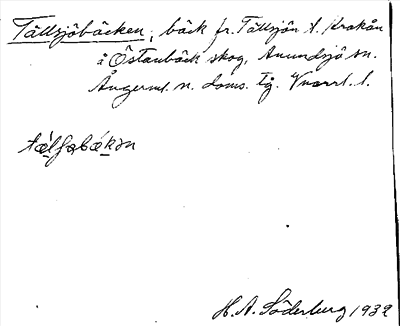 Tällsjöbäcken, bäck fr. Tällsjön t. Krokån
å Östanbäck skog, Anundsjö sn.
Ångerml. n. doms. tg. Vnorrl. l.
H. A. Söderburg 1932